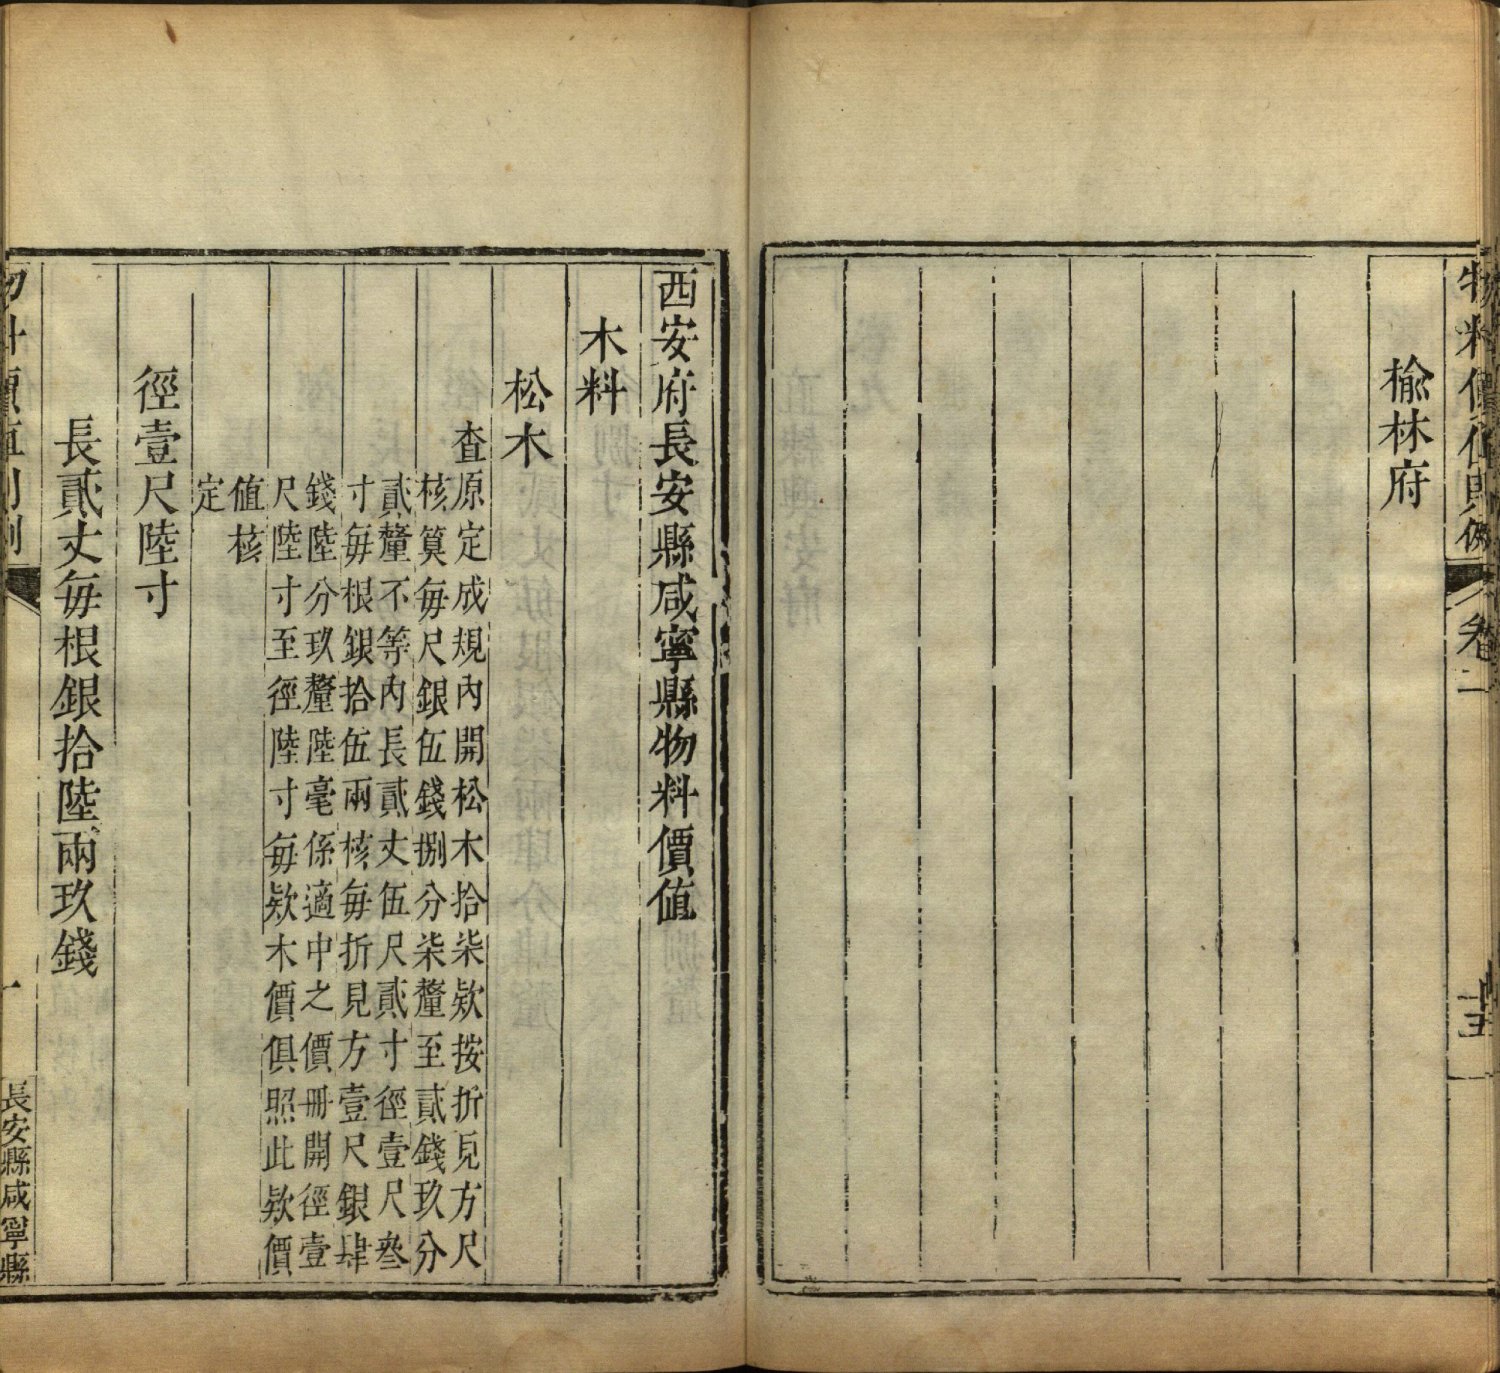 物料價值則例
卷二
十五
榆林府
西安府長安縣咸寧縣物料價值
木料
松木
查原定成規內開松木拾柒欵按折見方尺
核算每尺銀伍錢捌分柒釐至貳錢玖分
貳釐不等內長貳丈伍尺貳寸徑壹尺叁
寸每根銀拾伍兩核每折見方壹尺銀肆
錢陸分玖釐陸毫係適中之價冊開徑壹
尺陸寸至徑陸寸每欵木價俱照此欵價
值核
定
徑壹尺陸寸
長貳丈每根銀拾陸兩玖錢
物料價值則例
一
長安縣咸寧縣